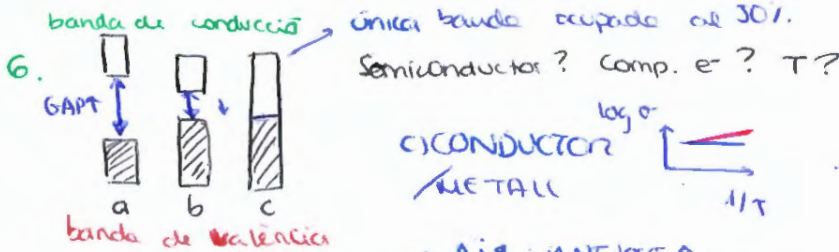 banda de conducció única banda ocupada al 50%.
6. Semiconductor? Comp. e⁻? T?
GAP↑ log σ
C) CONDUCTOR
/METALL
a b c 1/T
banda de valència